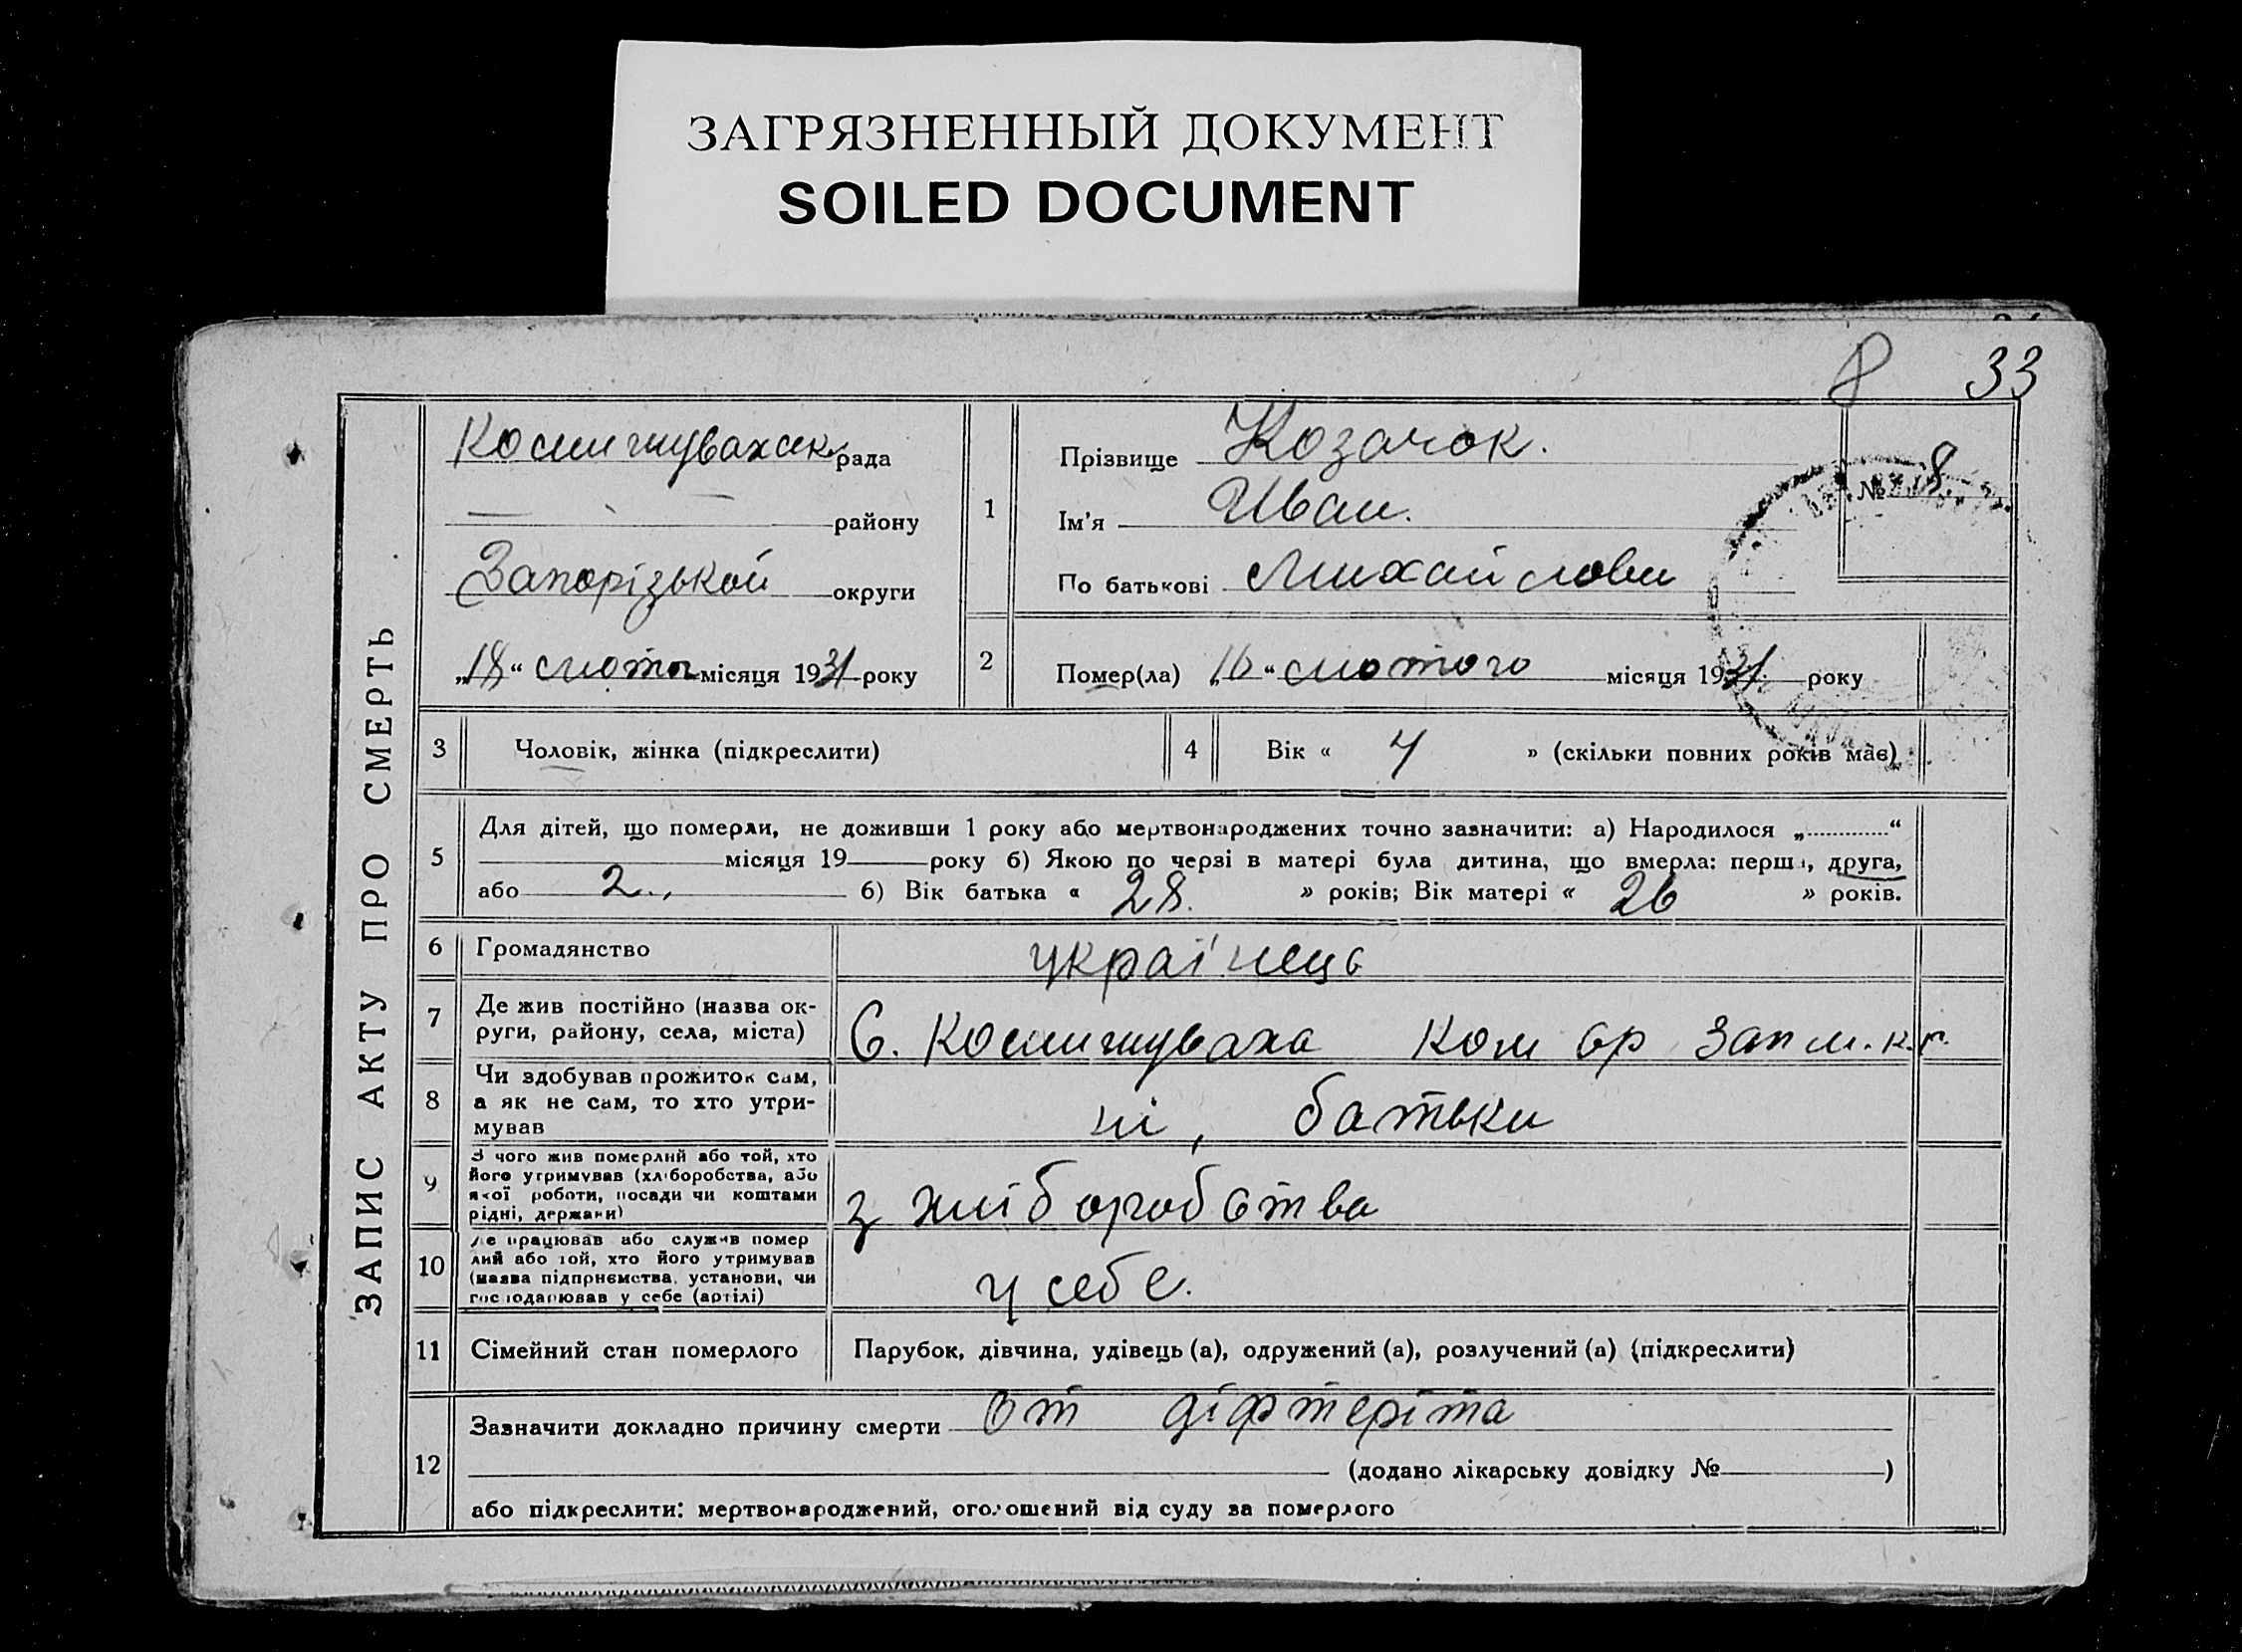 ЗАГРЯЗНЕННЫЙ ДОКУМЕНТ
SOILED DOCUMENT
8 33
ЗАПИС АКТУ ПРО СМЕРТЬ
Комишувахск рада
району
Запорізької округи
„18“ лютого місяця 1931 року
1
Прізвище Козачок.
Ім'я Иван.
По батькові Михайлови
№ 8
2
Помер(ла) „16“ лютого місяця 1931 року
3 Чоловік, жінка (підкреслити)
4 Вік « 4 » (скільки повних років має)
5 Для дітей, що померли, не доживши 1 року або мертвонароджених точно зазначити: а) Народилося „............“
місяця 19 року б) Якою по черзі в матері була дитина, що вмерла: перша, друга,
або 2., б) Вік батька « 28. » років; Вік матері « 26 » років.
6 Громадянство українець
7 Де жив постійно (назва ок-
руги, району, села, міста) С. Комишуваха Ком ор Зап м.к.р.
8 Чи здобував прожиток сам,
а як не сам, то хто утри-
мував ні, батьки
9 З чого жив померлий або той, хто
його утримував (хліборобства, або
якої роботи, посади чи коштами
рідні, держави) з хліборобства
10 Де працював або служив помер
лий або той, хто його утримував
(назва підприємства, установи, чи
господарював у себе (артілі) у себе.
11 Сімейний стан померлого Парубок, дівчина, удівець (а), одружений (а), розлучений (а) (підкреслити)
12 Зазначити докладно причину смерти от діфтеріта
(додано лікарську довідку № )
або підкреслити: мертвонароджений, оголошений від суду за померлого